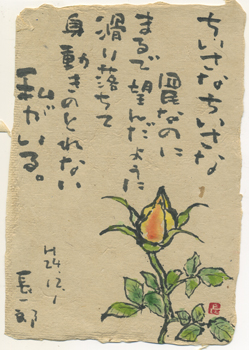 ちいさなちいさな
罠なのに
まるで望んだように
滑り落ちて
身動きのとれない
私がいる。
H24.12.1
長一郎